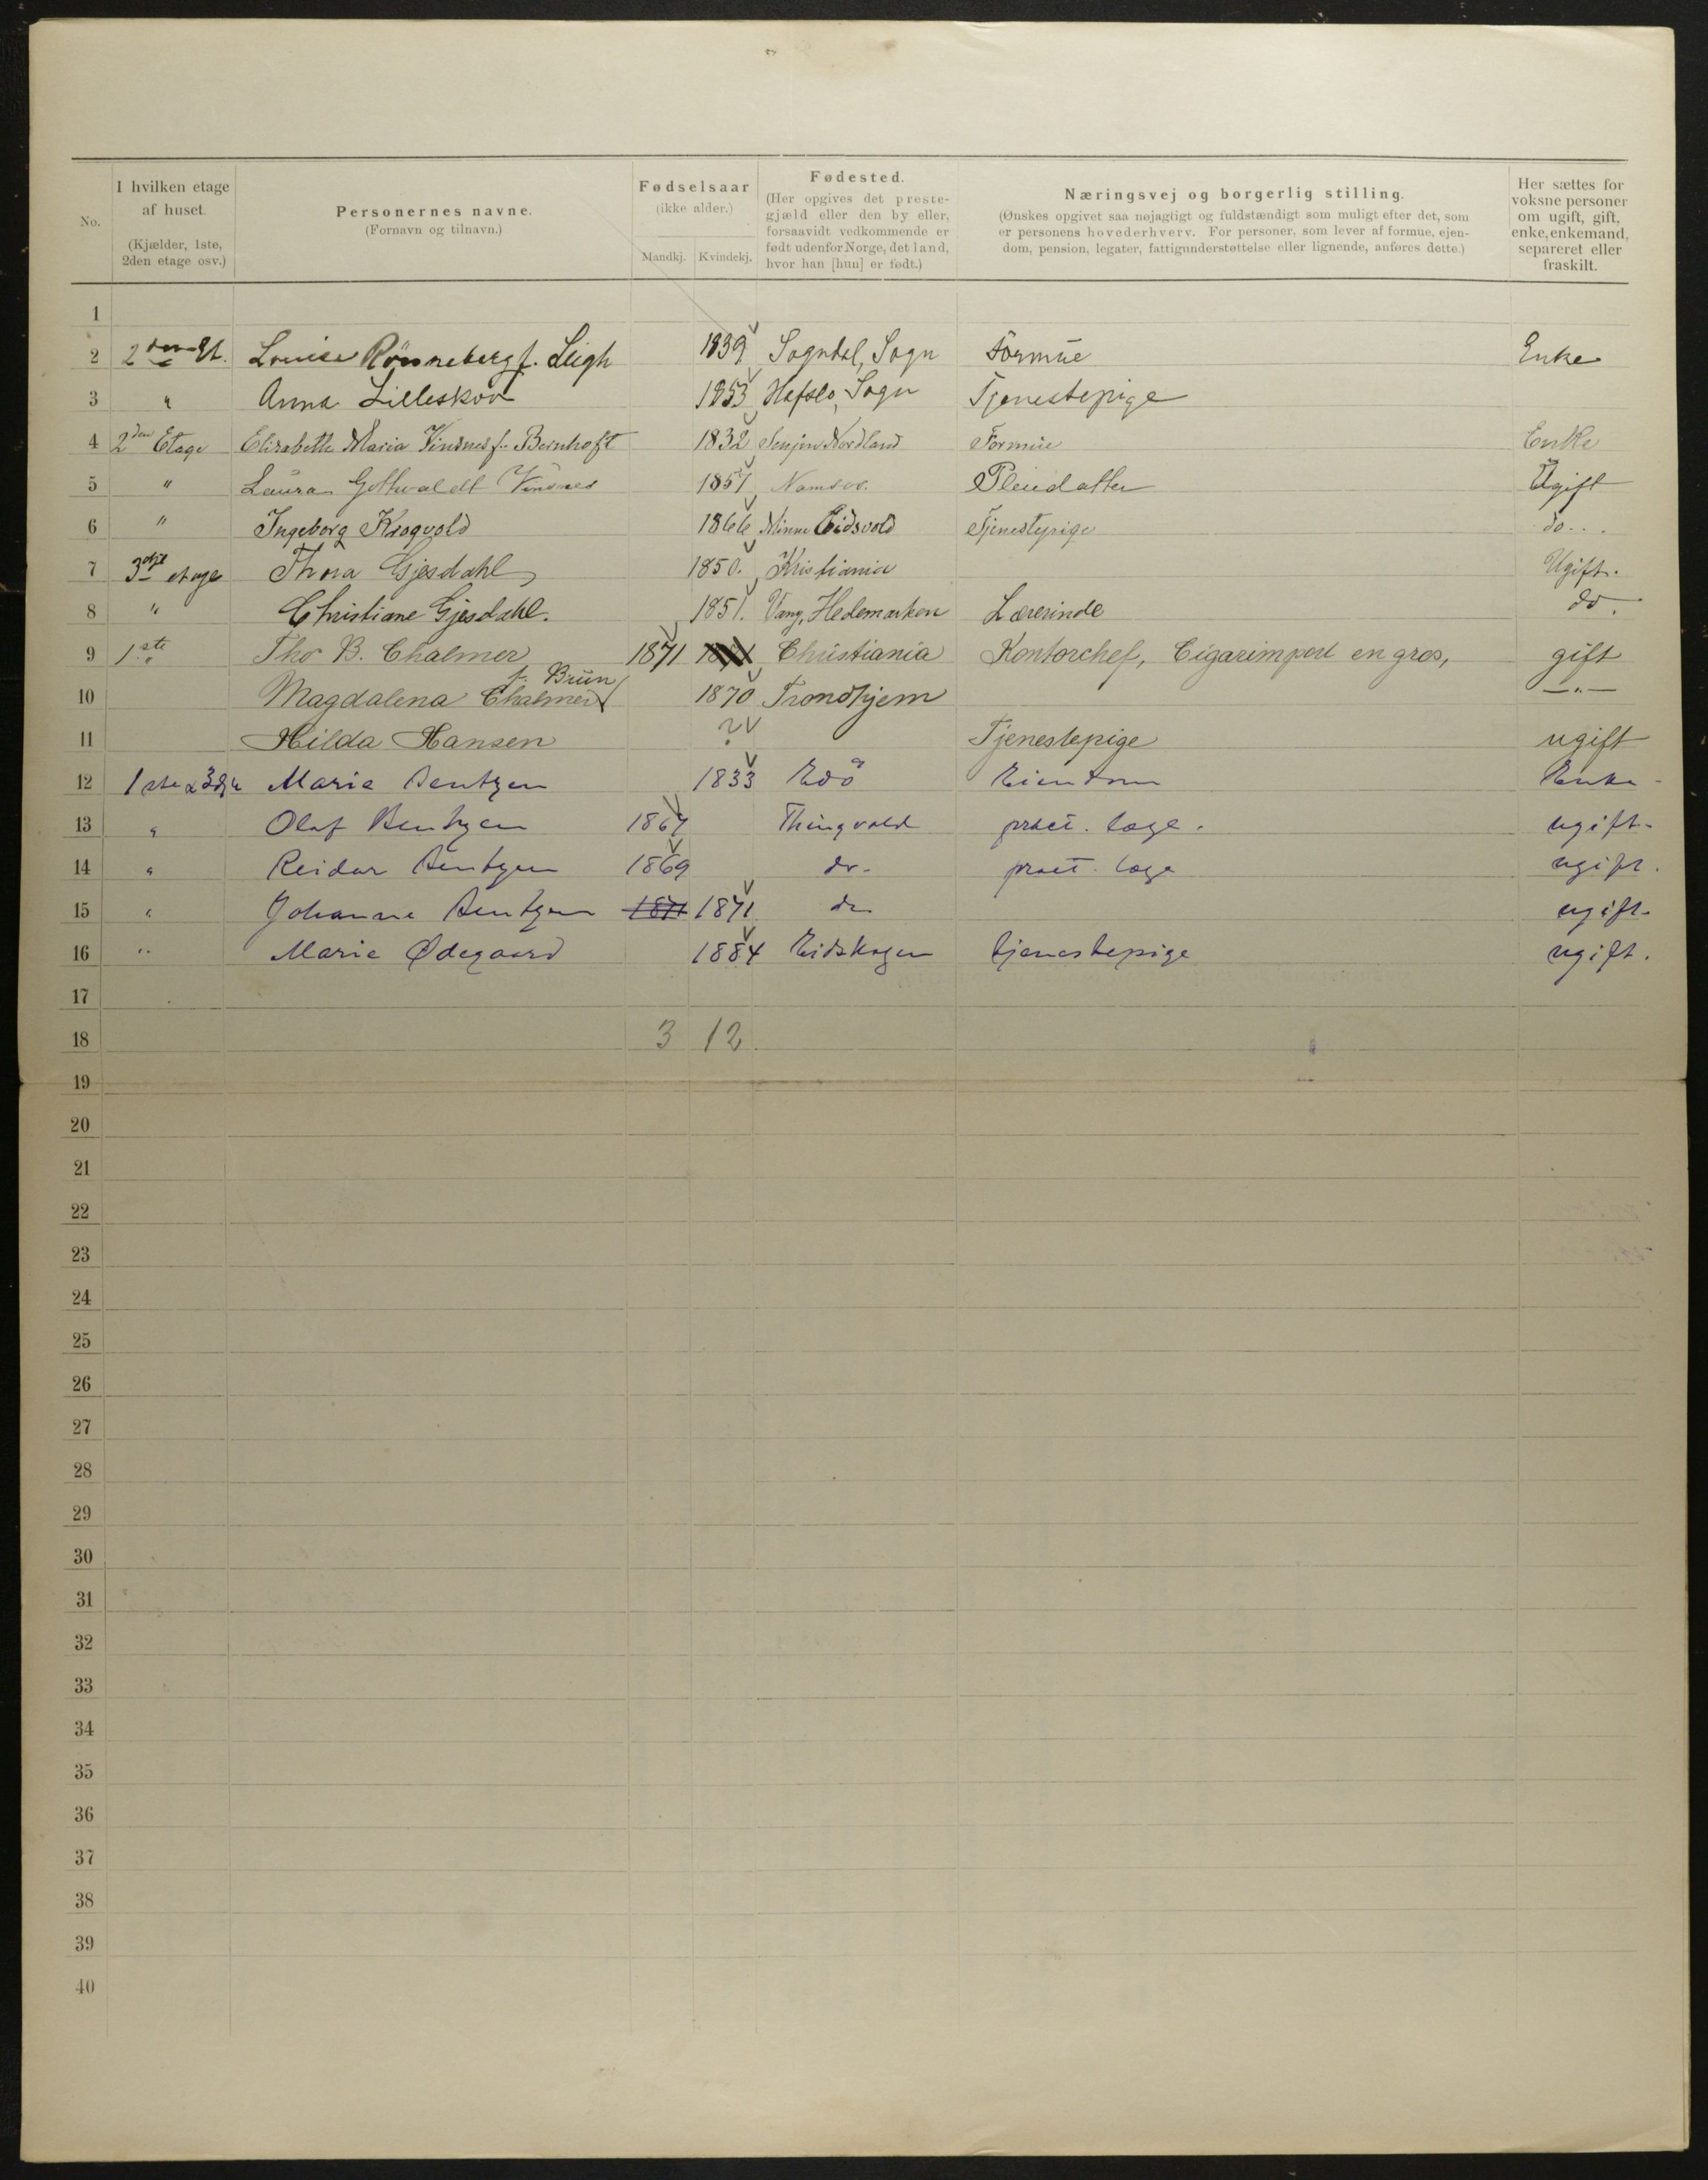 No.
I hvilken etage af huset.
(Kjælder, 1ste, 2den etage osv.)
Personernes navne.
(Fornavn og tilnavn.)
Fødselsaar
(ikke alder.)
Mandkj. Kvindekj.
Fødested.
(Her opgives det prestegjæld eller den by eller, forsaavidt vedkommende er født udenfor Norge, det land, hvor han [hun] er født.)
Næringsvej og borgerlig stilling.
(Ønskes opgivet saa nøjagtigt og fuldstændigt som muligt efter det, som er personens hovederhverv. For personer, som lever af formue, ejendom, pension, legater, fattigunderstøttelse eller lignende, anføres dette.)
Her sættes for voksne personer om ugift, gift, enke, enkemand, separeret eller fraskilt.
1
2 2den Et. Louise Rönneberg f. Leigh 1839 Sogndal, Sogn Formue Enke
3 " Anna Lilleskov 1853 Hafslo, Sogn Tjenestepige
4 2den Etage Elisabeth Maria Vindnes f. Bernhoft 1832 Senjen Nordland Formue Enke
5 " Laura Gotthvaldt Vindnes 1857 Namsos. Pleiedatter Ugift
6 " Ingeborg Krogvold 1866 Minne Eidsvold Tjenestepige do...
7 3dje etage Thora Gjesdahl 1850. Kristiania Ugift.
8 " Christiane Gjesdahl. 1851. Vang, Hedemarken Lærerinde do.
9 1ste Tho B. Chalmer 1871 Christiania Kontorchef, Cigarimport en gros, gift
10 Magdalena Chalmer f. Brün 1870 Trondhjem —"—
11 Hilda Hansen ? Tjenestepige ugift
12 1ste & 3dje Marie Bentzen 1833 Edö Eiendom Enke
13 " Olaf Bentzen 1867 Thingvold pract. læge. ugift.
14 " Reidar Bentzen 1869 do. pract. læge ugift.
15 " Johanne Bentzen 1871 1871 do ugift.
16 " Marie Ødegaard 1884 Eidskogen tjenestepige ugift.
17
18 3 12
19
20
21
22
23
24
25
26
27
28
29
30
31
32
33
34
35
36
37
38
39
40